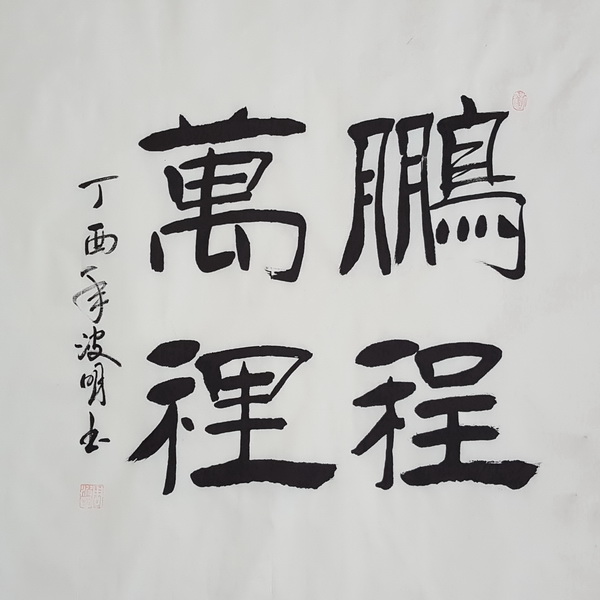 鵬程
萬裡
丁酉年波明书